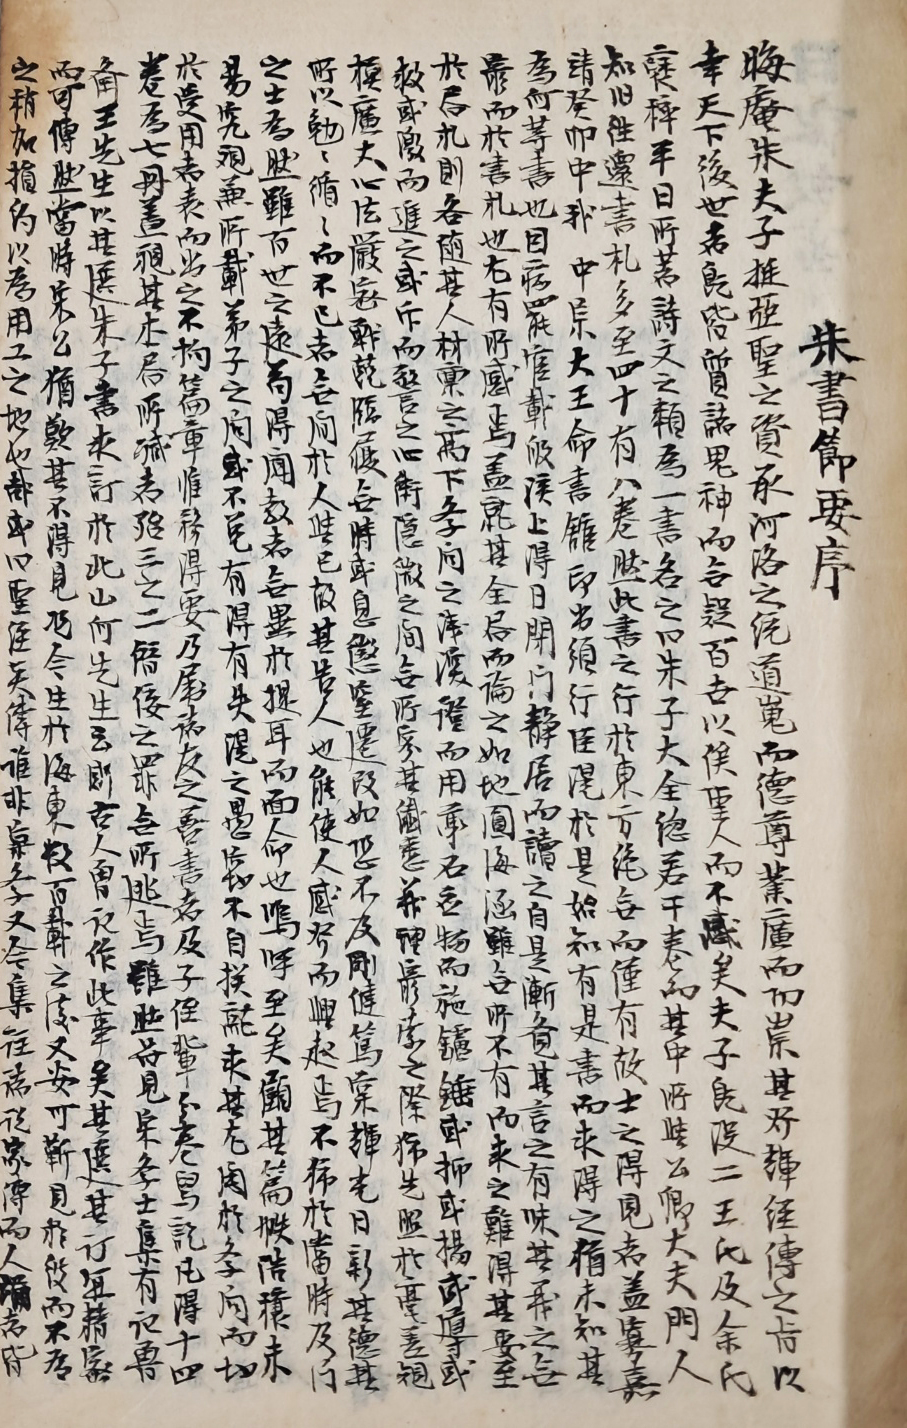 朱書節要序
晦庵朱夫子挺亞聖之資承河洛之統道巍而德尊業廣而功崇其發揮經傳之旨以
幸天下後世者旣皆質諸鬼神而無疑百世以俟聖人而不惑矣夫子旣沒二王氏及余氏
裒稡平日所著詩文之類爲一書名之曰朱子大全總若干卷而其中所與公卿大夫門人
知旧往還書札多至四十有八卷然此書之行於東方絶無而僅有故士之得見者盖寡嘉
靖癸卯中我 中宗大王命書館印出頒行臣滉於是始知有是書而求得之猶未知其
爲何等書也因病罷官載般溪上得日閉門靜居而讀之自是漸覺其言之有味其義之無
窮而於書札也尤有所感焉盖就其全書而論之如地負海涵雖無所不有而求之難得其要至
於書札則各隨其人材稟之高下孝問之淺深證而用藥石應物而施鑪錘或抑或揚或導或
救或激而進之或斥而警之心術隱微之間無所容其纖惡義理窮索之際獨先照於毫差規
模廣大心法嚴密戰兢臨履無時或息懲窒遷改如恐不及剛健篤實輝光日新其德其
所以勉〻循〻而不已者無间於人與己故其告人也能使人感發而興起焉不獨於當時及门
之士爲然雖百世之遠苟得聞教者無異於提耳而面命也嗚呼至矣顧其篇帙浩穰未
易究覌兼所載弟子之问或不免有得有失滉之愚竊不自揆就求其尤関於孝问而切
於受用者表而出之不拘篇章惟務得要乃屬諸友之善書者及子侄輩分卷寫訖凡得十四
卷爲七冊盖視其本書所減者殆三之二僭侫之罪無所逃焉雖然嘗見宋孝士集有記魯
斎王先生以其選朱子書求訂於北山何先生云則古人曽已作此事矣其選其訂宜精密
而可傳然當時宋公猶歎其不得見况今生於海東数百載之後又安可蘄見於彼而不爲
之稍加損約以爲用工之地也哉或曰聖經矣傳誰非實孝又今集註諸說家傳而人誦者皆